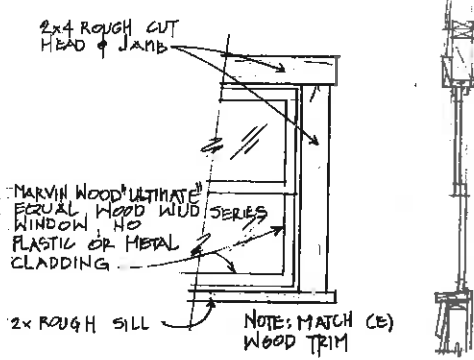 2x4 ROUGH CUT
HEAD & JAMB
MARVIN WOOD "ULTIMATE"
EQUAL WOOD WUD SERIES
WINDOW, NO
PLASTIC OR METAL
CLADDING
2x ROUGH SILL
NOTE: MATCH (E)
WOOD TRIM